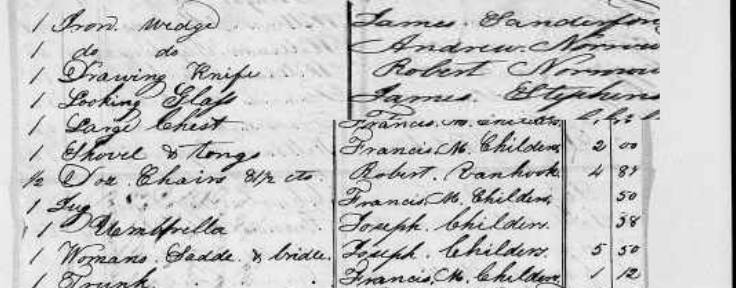 1 Iron Wedge James Sanderson
1 do do Andrew
1 Drawing Knife Robert
1 Looking Glass James Stephens
1 Large Chest Francis. M.
1 Shovel & Tongs Francis. M. Childers 2 00
1/2 Doz Chairs 81 1/2 cts Robert Vanhook 4 89
1 Jug Francis. M. Childers 50
1 Umbrella Joseph. Childers. 38
1 Womans Sadde & bridle. Joseph. Childers. 5 50
1 Trunk Francis. M. Childers 1 12